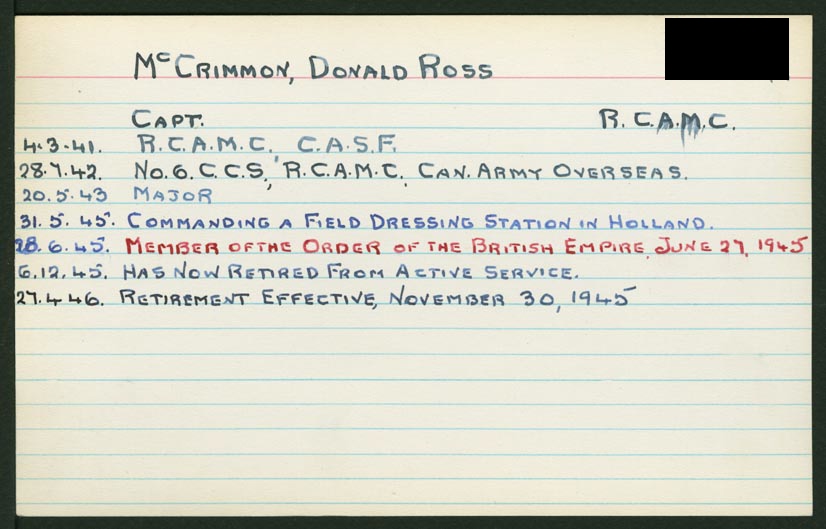 McCRIMMON, DONALD ROSS
CAPT. R.C.A.M.C.
4.3.41. R.C.A.M.C. C.A.S.F.
28.7.42. NO.6.C.C.S, R.C.A.M.C, CAN. ARMY OVERSEAS.
20.5.43 MAJOR
31.5.45. COMMANDING A FIELD DRESSING STATION IN HOLLAND.
28.6.45. MEMBER OF THE ORDER OF THE BRITISH EMPIRE, JUNE 27, 1945
6.12.45. HAS NOW RETIRED FROM ACTIVE SERVICE.
27.4.46. RETIREMENT EFFECTIVE, NOVEMBER 30, 1945